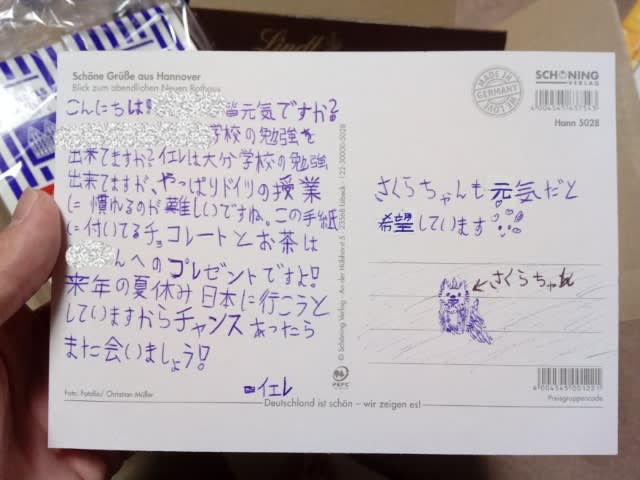 Lindt
Schöne Grüße aus Hannover
Blick zum abendlichen Neuen Rathaus
こんにちは! 元気ですか?
学校の勉強を
出来てますか?イエレは大分学校の勉強
出来てますが、やっぱりドイツの授業
に慣れるのが難しいですね。この手紙
に付いてるチョコレートとお茶は
んへのプレゼントですよ!
来年の夏休み日本に行こうと
していますからチャンスあったら
また会いましょう!
ーイエレ
Foto: Fotolia/ Christian Müller
Deutschland ist schön – wir zeigen es!
© Schöning Verlag · An der Hülshorst 5 · 23568 Lübeck · 122-30000-5028
PEFC
MADE IN
GERMANY
SCHÖNING
VERLAG
Hann 5028
さくらちゃんも元気だと
希望しています
←さくらちゃん
4004545001231
Preisgruppencode